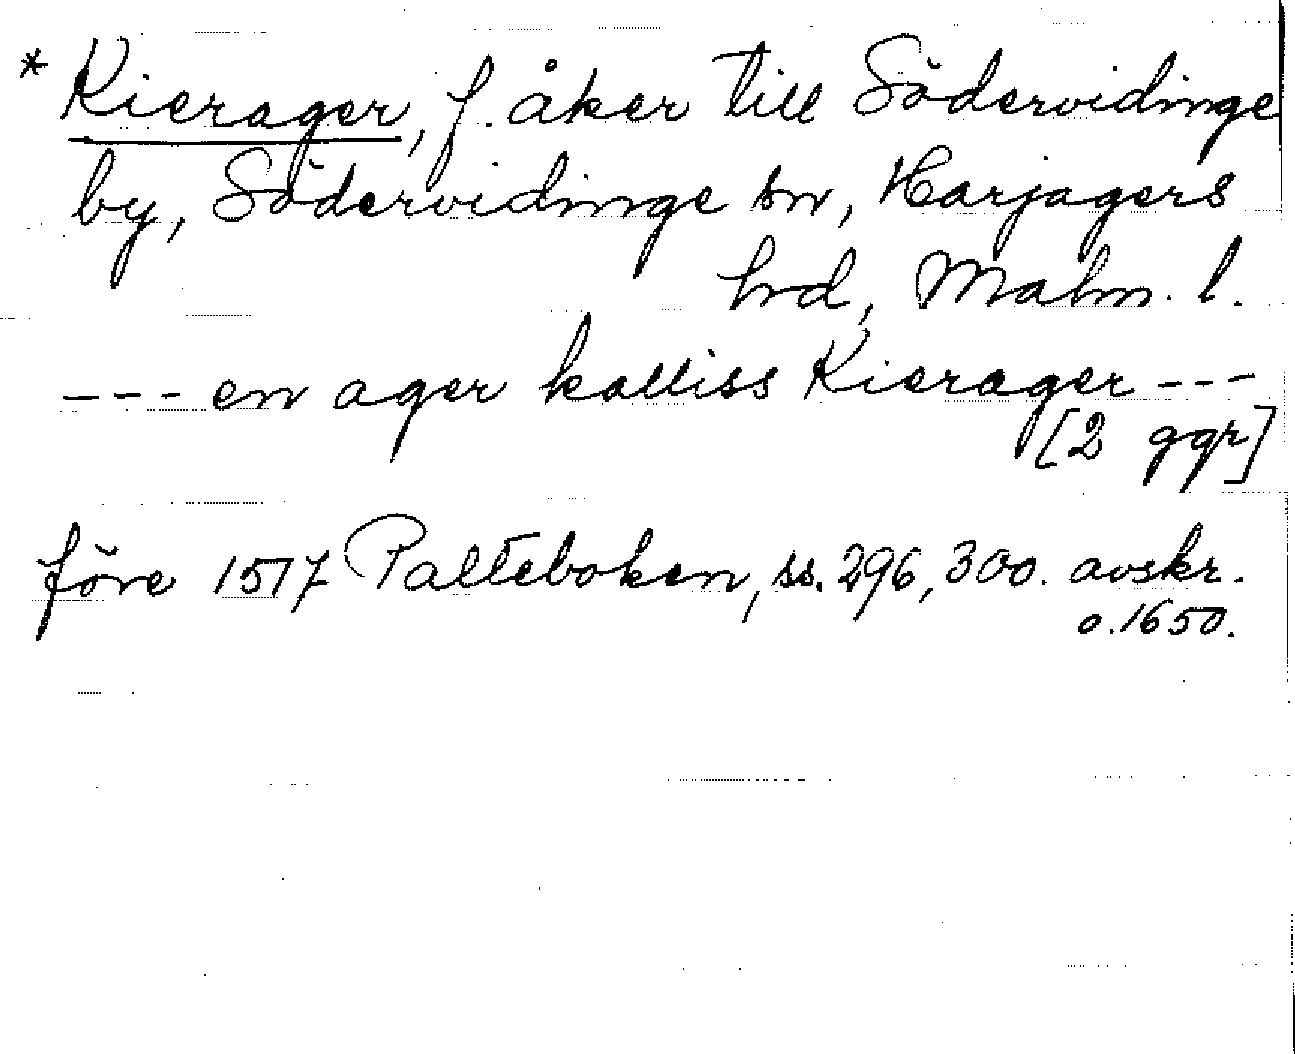 * Kierager, f. åker till Södervidinge
by, Södervidinge sn, Harjagers
hrd, Malm. l.
--- en ager kalliss Kierager ---
[2 ggr]
före 1517 Palteboken, ss. 296, 300. avskr.
o. 1650.